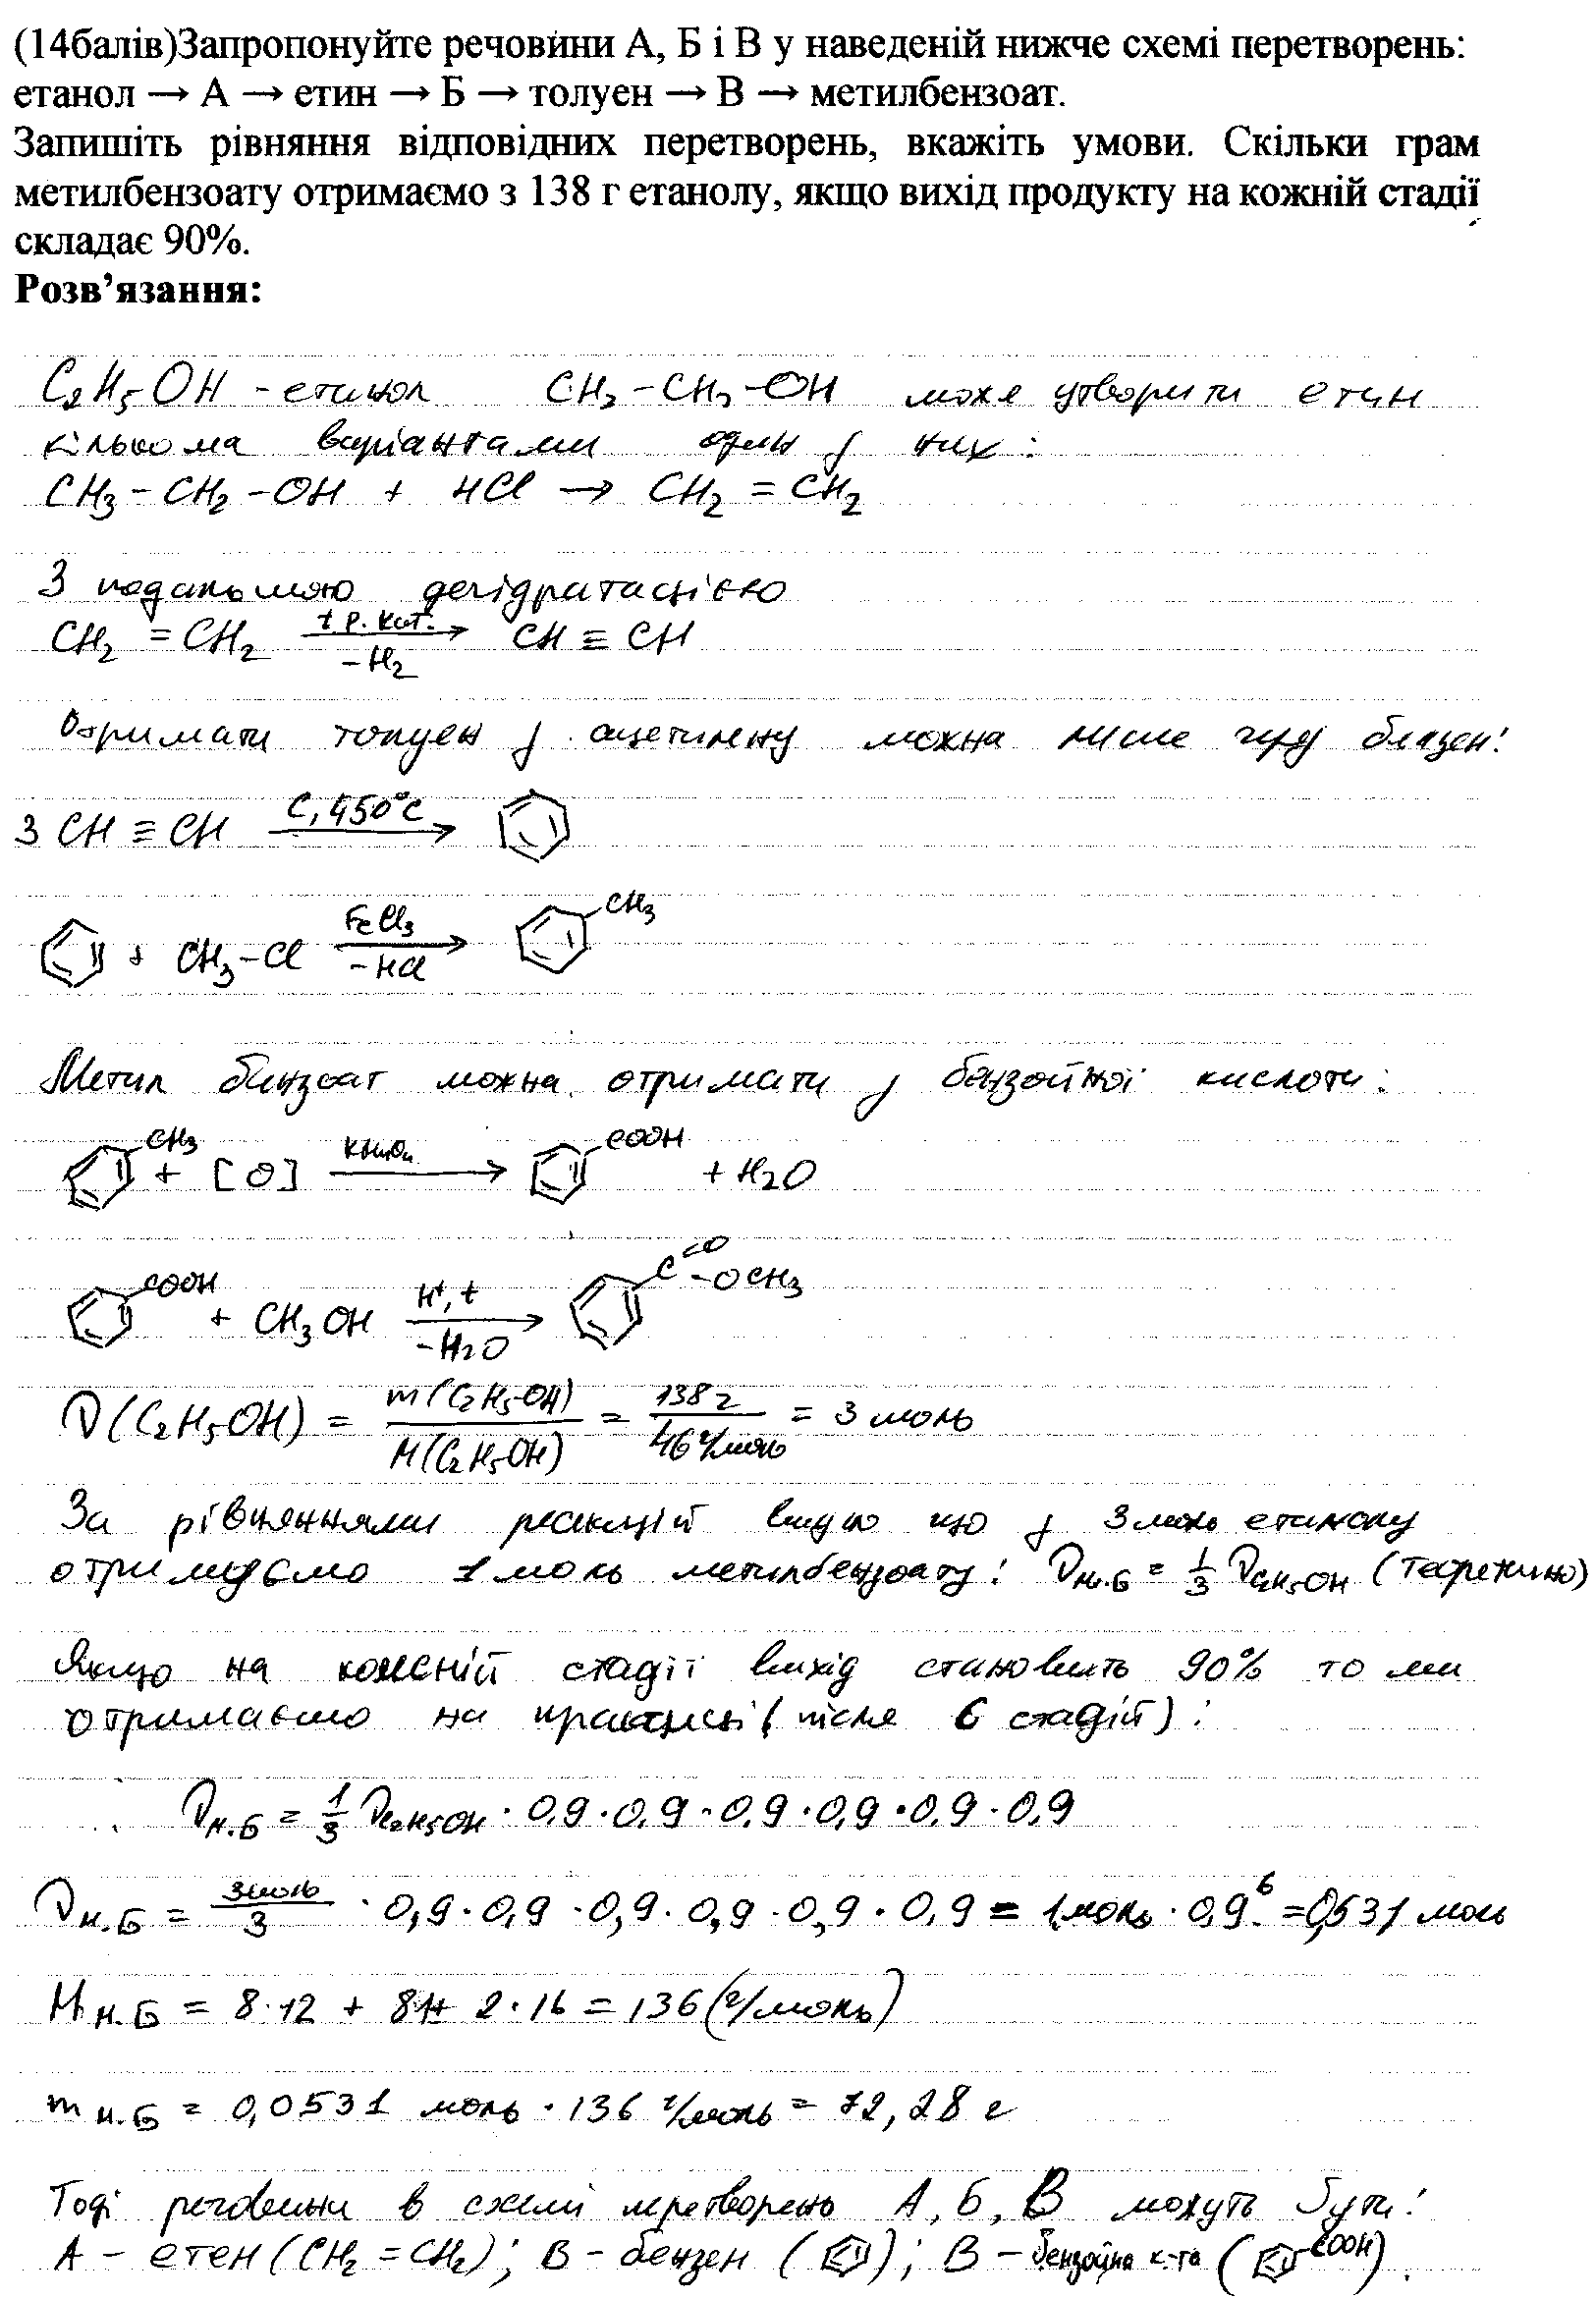 (14балів)Запропонуйте речовини А, Б і В у наведеній нижче схемі перетворень:
етанол → А → етин → Б → толуен → В → метилбензоат.
Запишіть рівняння відповідних перетворень, вкажіть умови. Скільки грам
метилбензоату отримаємо з 138 г етанолу, якщо вихід продукту на кожній стадії
складає 90%.
Розв’язання:
C₂H₅OH - етанол CH₃-CH₂-OH може утворити етин
кількома варіантами один з них:
CH₃-CH₂-OH + HCl → CH₂=CH₂
З подальшою дегідратацією
CH₂=CH₂ t.p.кат. → -H₂ CH≡CH
Отримати толуен з ацетилену можна лише через бензен:
3 CH≡CH C, 450°C →
+ CH₃-Cl FeCl₃ → -HCl CH₃
Метил бензоат можна отримати з бензойної кислоти:
CH₃ + [O] KMnO₄ → COOH + H₂O
COOH + CH₃OH H⁺, t → -H₂O C=O -OCH₃
ν(C₂H₅OH) = m(C₂H₅OH)/M(C₂H₅OH) = 138 г/46 г/моль = 3 моль
За рівняннями реакцій видно що з 3 моль етанолу
отримуємо 1 моль метилбензоату: νм.б = 1/3 νC₂H₅OH (теоретично)
Якщо на кожній стадії вихід становить 90% то ми
отримаємо на практиці (після 6 стадій):
νм.б = 1/3 νC₂H₅OH · 0,9 · 0,9 · 0,9 · 0,9 · 0,9 · 0,9
νм.б = 3моль/3 · 0,9 · 0,9 · 0,9 · 0,9 · 0,9 · 0,9 = 1моль · 0,9⁶ = 0,531 моль
Mм.б = 8·12 + 8·1+ 2·16 = 136 (г/моль)
mм.б = 0,0531 моль · 136 г/моль = 72,28 г
Тоді речовини в схемі перетворень А, Б, В можуть бути:
А - етен (CH₂=CH₂); В - бензен ( ); В - бензойна к-та ( COOH).